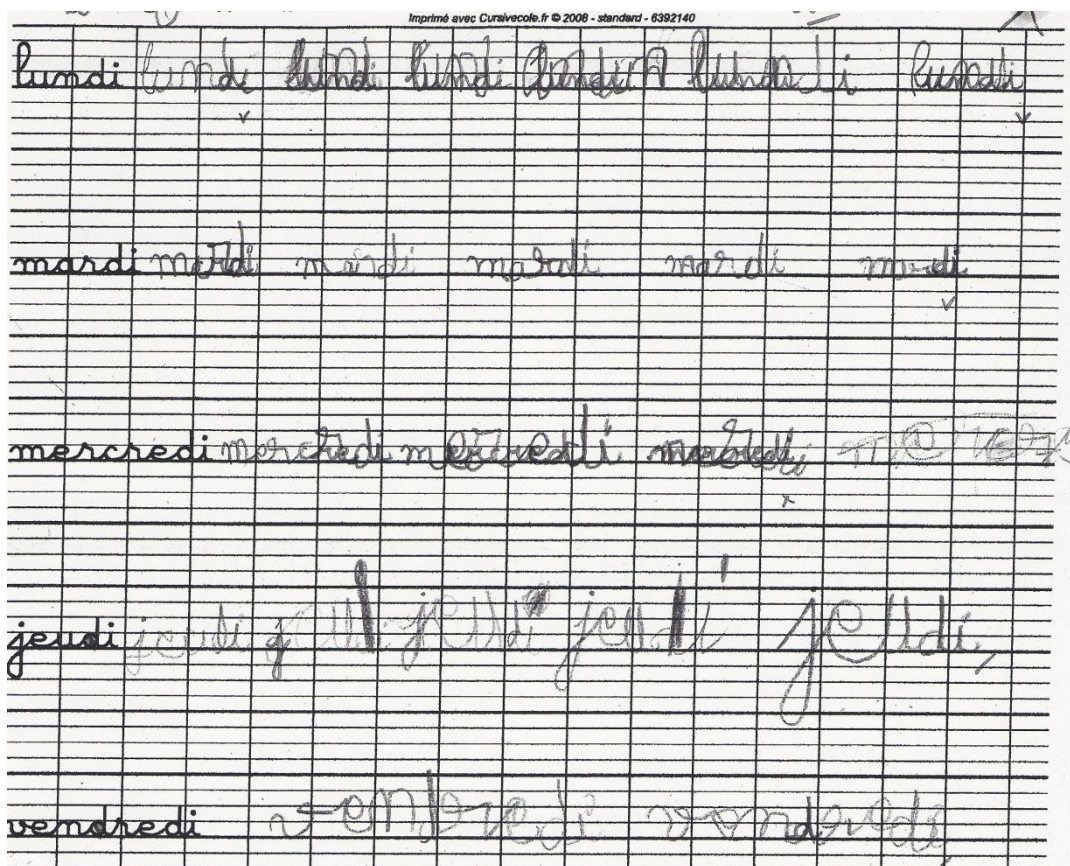 Imprimé avec Cursivecole.fr © 2008 - standard - 6392140
lundi lundi lundi lundi lundi lundi lundi
mardi mardi mardi mardi mardi mardi
mercredi mercredi mercredi
jeudi jeudi jeudi jeudi jeudi
vendredi vendredi vendredi